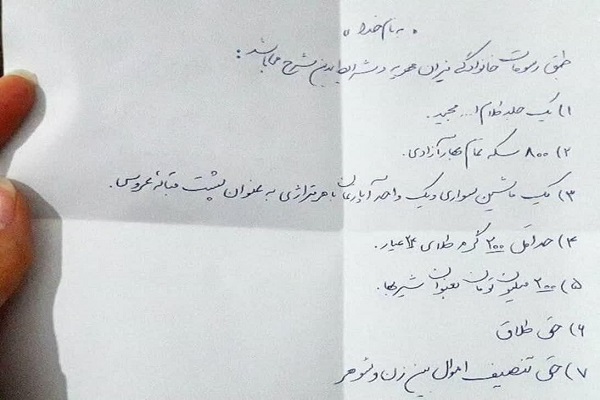 « به نام خدا »
طبق رسومات خانوادگی میزان مهریه و شرایط بدین شرح میباشد:
۱) یک جلد کلام ا... مجید.
۲) ۸۰۰ سکه تمام بهار آزادی.
۳) یک ماشین سواری و یک واحد آپارتمان با هر متراژی به عنوان پشت قباله عروس.
۴) حداقل ۲۰۰ گرم طلای ۲۴ عیار.
۵) ۲۰۰ میلیون تومان بعنوان شیربها.
۶) حق طلاق
۷) حق تنصیف اموال بین زن و شوهر